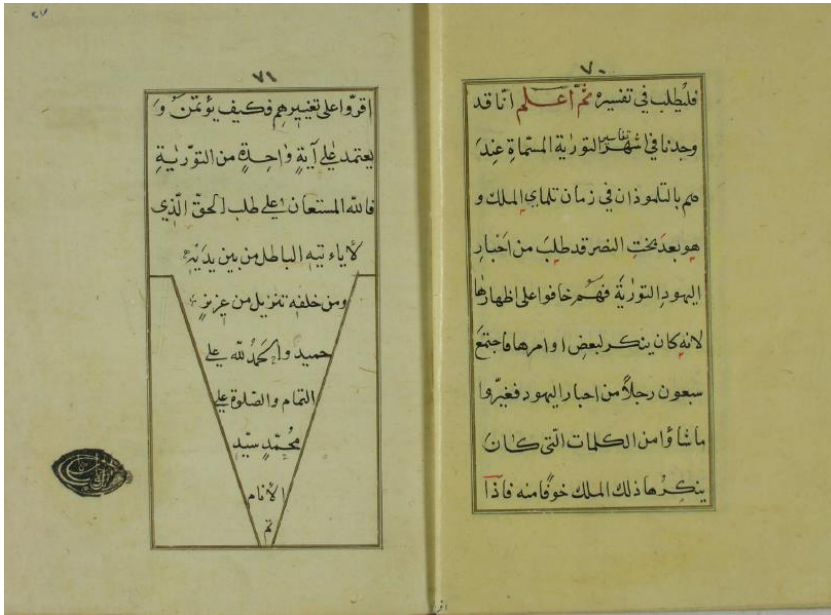 ٧٠
فليطلب في تفسيره ثمّ اعلم انّا قد
وجدنا في اشهر تفاسير التورٰية المسمّاة عند
هم بالتلموذ ان في زمان تلماي الملك و
هو بعد بخت النصر قد طلب من احبار
اليهود التورٰية فهم خافوا على اظهارها
لانه كان ينكر لبعض اوامرها فاجتمع
سبعون رجلاً من احبار اليهود فغيّروا
ما شاؤا من الكلمات التى كان
ينكرها ذلك الملك خوفًا منه فاذا
اقرّ
٧١
اقرّوا على تغييرهم فكيف يؤتمن و
يعتمد على آية واحدة من التورٰية
فالله المستعان على طلب الحقّ الّذي
لا ياءتيه الباطل من بين يديه
ومن خلفه تنزيل من عزيز
حميد والحمد لله على
التمام والصلوة على
محمّد سيّد
الأنام
تم